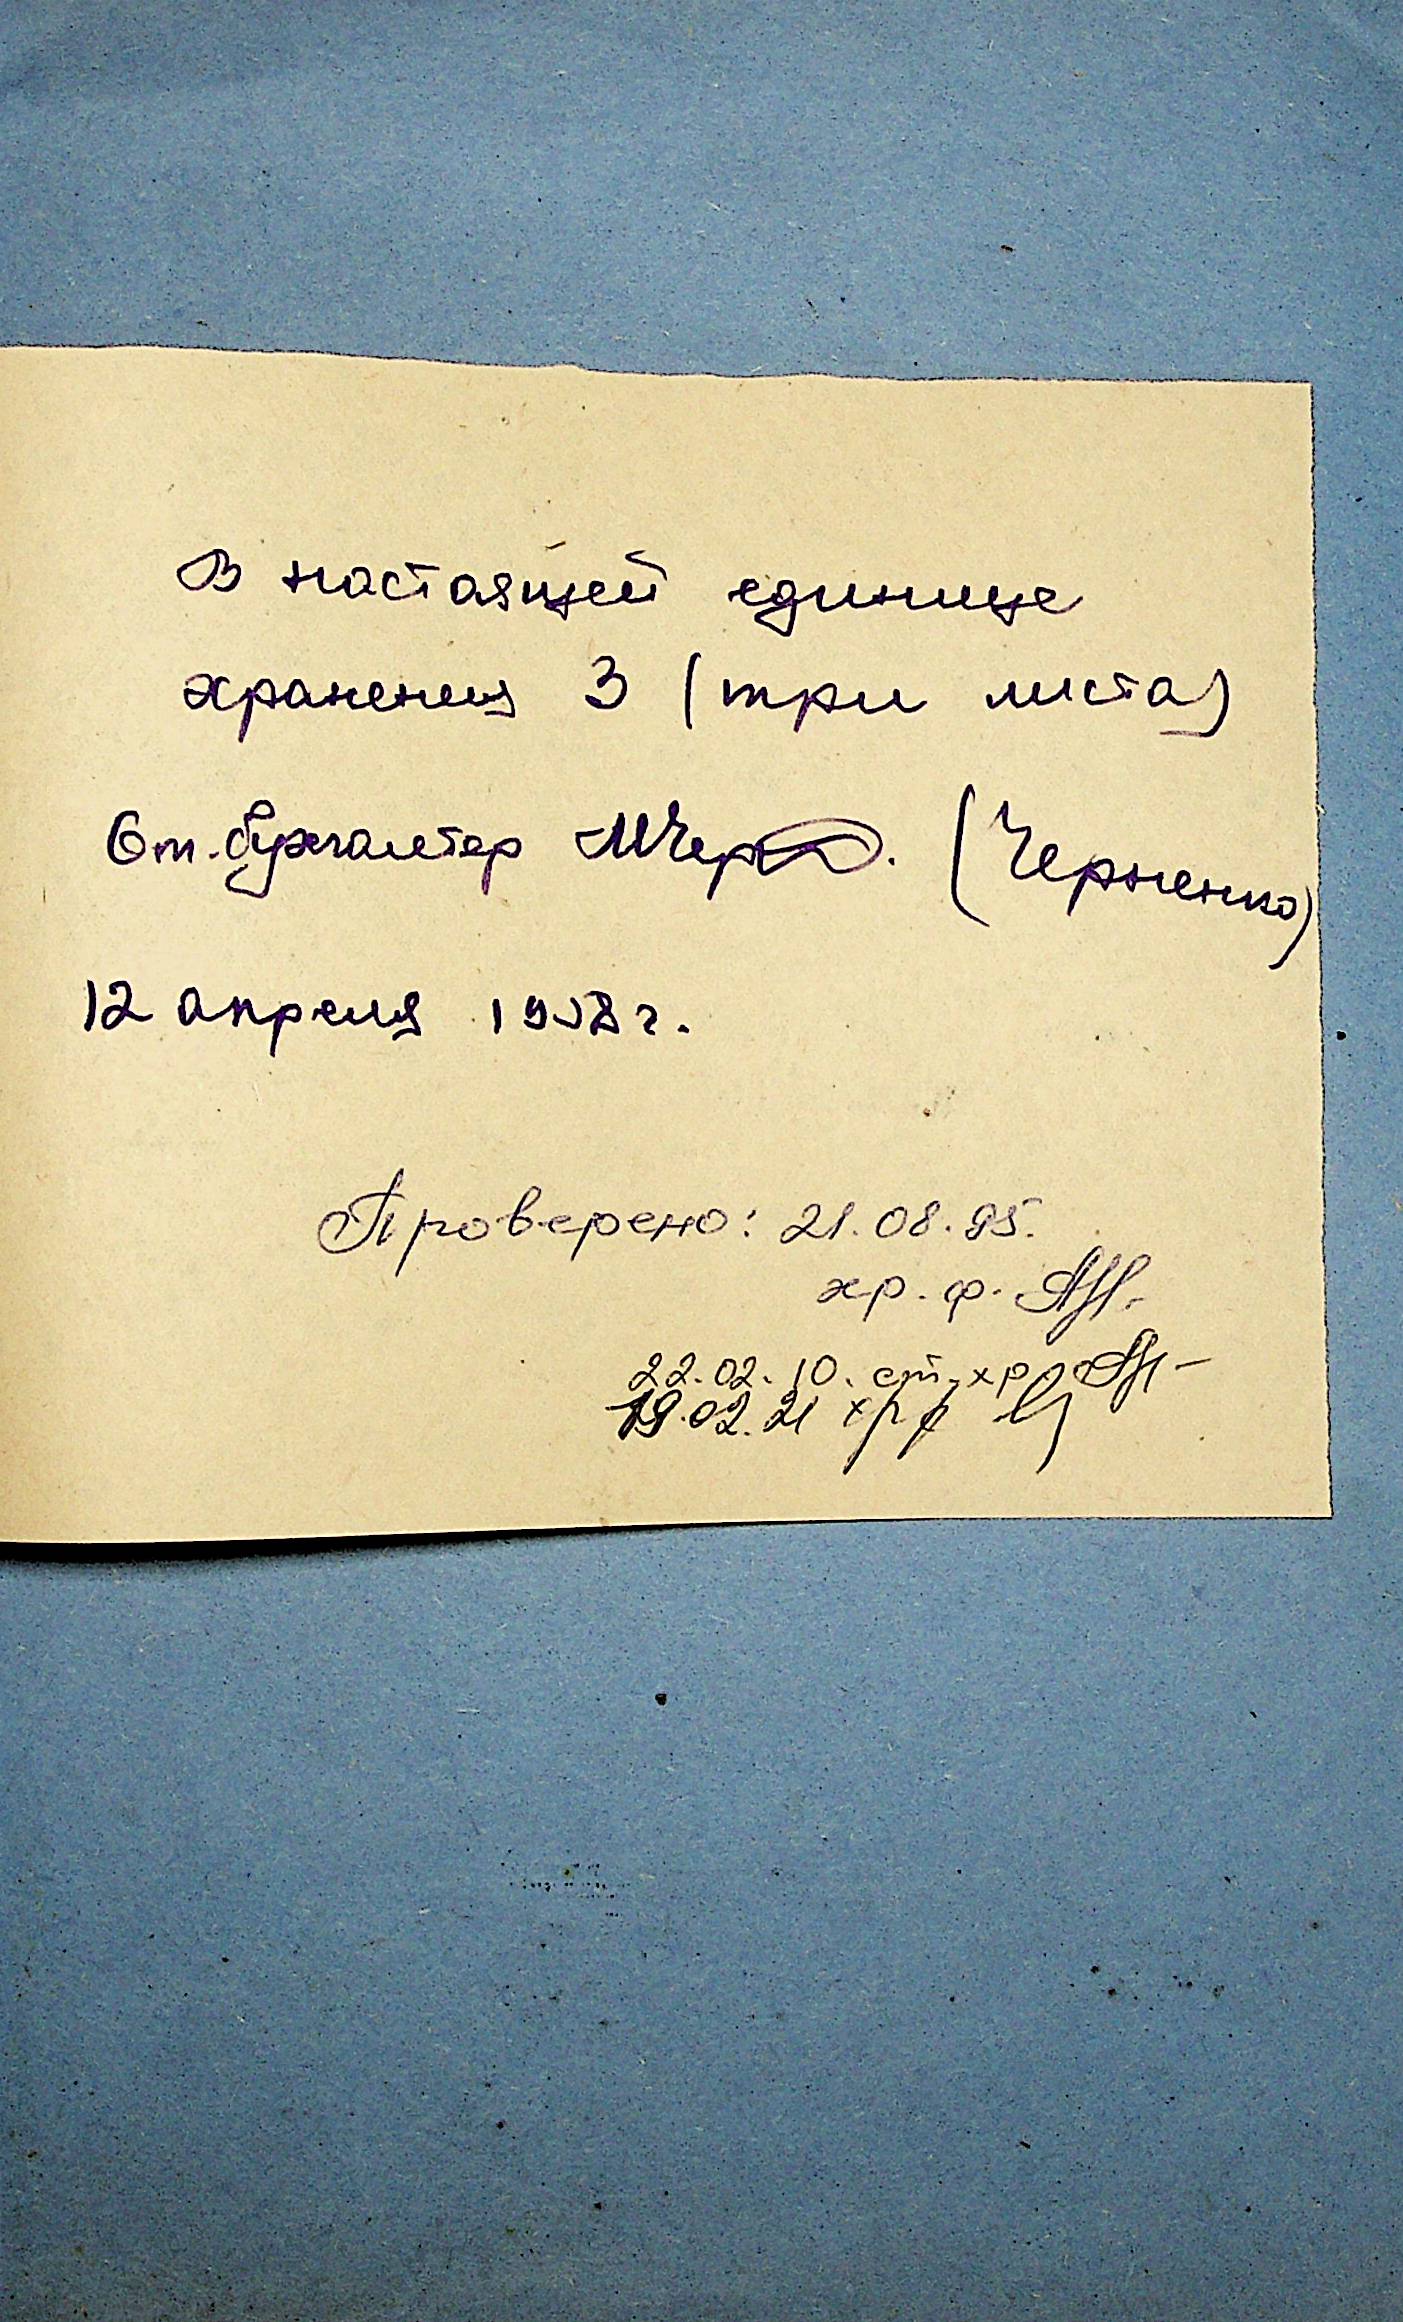 В настоящей единице
хранения 3 (три листа)
Ст. бухгалтер (Черненко)
12 апреля 1958 г.
Проверено: 21.08.95.
хр. ф.
22.02.10. ст. хр.
19.02.21 хр ф